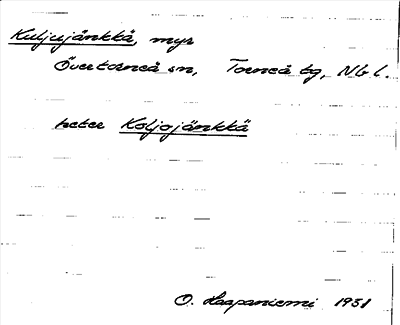 Kuljujänkkä, myr
Övertorneå sn, Torneå tg, Nb l.
heter Koljojänkkä
O. Haapaniemi 1951